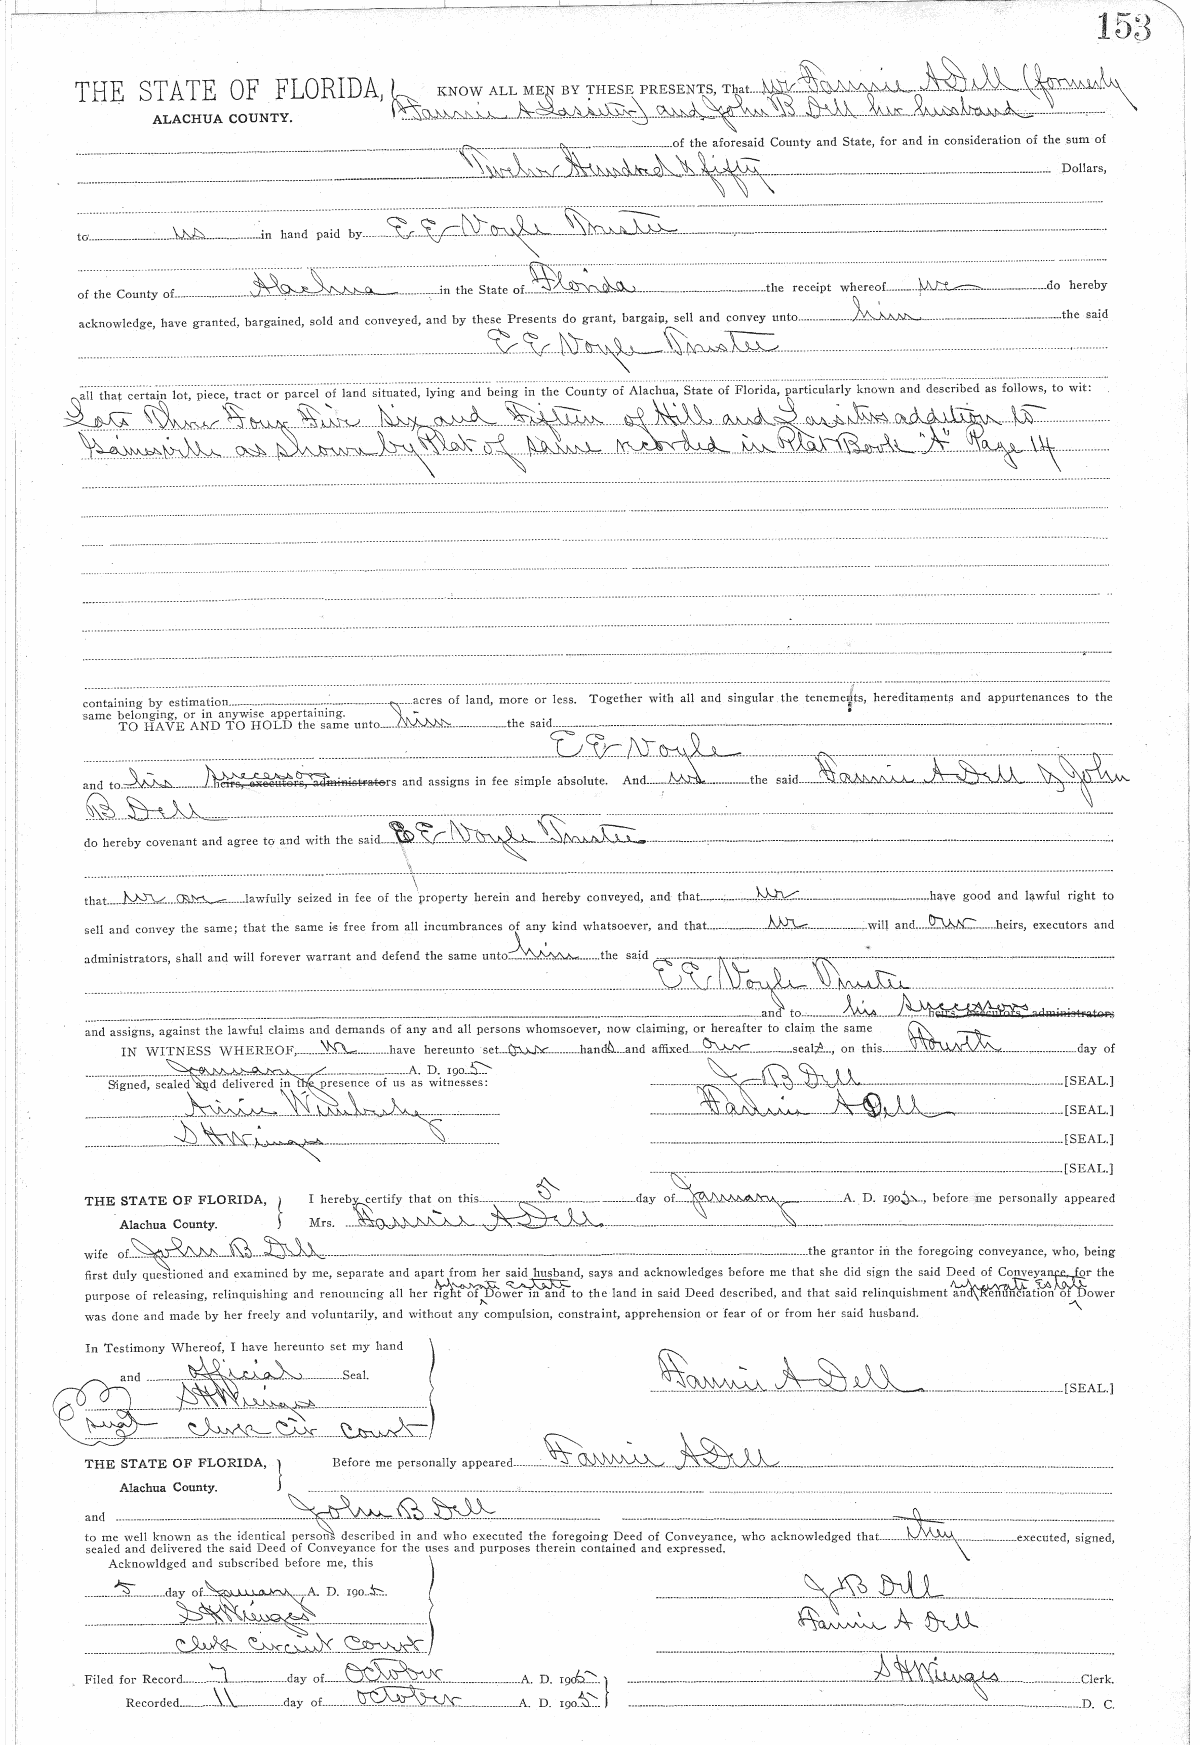 153
THE STATE OF FLORIDA, KNOW ALL MEN BY THESE PRESENTS, That we Fannie A Dell (formerly
ALACHUA COUNTY. Fannie A Lassiter) and John B Dell her husband
of the aforesaid County and State, for and in consideration of the sum of
Twelve Hundred & fifty Dollars,
to us in hand paid by E E Voyle Trustee
of the County of Alachua in the State of Florida the receipt whereof we do hereby
acknowledge, have granted, bargained, sold and conveyed, and by these Presents do grant, bargain, sell and convey unto him the said
E E Voyle Trustee
all that certain lot, piece, tract or parcel of land situated, lying and being in the County of Alachua, State of Florida, particularly known and described as follows, to wit:
Lots Three Four Five Six and Fifteen of Hill and Lassiters addition to
Gainesville as shown by Plat of same recorded in Plat Book "A" Page 14
containing by estimation acres of land, more or less. Together with all and singular the tenements, hereditaments and appurtenances to the
same belonging, or in anywise appertaining.
TO HAVE AND TO HOLD the same unto him the said
E E Voyle
and to his successors heirs, executors, administrators and assigns in fee simple absolute. And we the said Fannie A Dell & John
B Dell
do hereby covenant and agree to and with the said E E Voyle Trustee
that we are lawfully seized in fee of the property herein and hereby conveyed, and that we have good and lawful right to
sell and convey the same; that the same is free from all incumbrances of any kind whatsoever, and that we will and our heirs, executors and
administrators, shall and will forever warrant and defend the same unto him the said
E E Voyle Trustee
and to his successors heirs, executors, administrators
and assigns, against the lawful claims and demands of any and all persons whomsoever, now claiming, or hereafter to claim the same
IN WITNESS WHEREOF, we have hereunto set our hands and affixed our seals, on this Fourth day of
January A. D. 1905 J B Dell [SEAL.]
Signed, sealed and delivered in the presence of us as witnesses:
Wimberly Fannie A Dell [SEAL.]
S H Wienges [SEAL.]
[SEAL.]
THE STATE OF FLORIDA, I hereby certify that on this 5 day of January A. D. 1905, before me personally appeared
Alachua County. Mrs. Fannie A Dell
wife of John B Dell the grantor in the foregoing conveyance, who, being
first duly questioned and examined by me, separate and apart from her said husband, says and acknowledges before me that she did sign the said Deed of Conveyance, for the
separate Estate separate Estate
purpose of releasing, relinquishing and renouncing all her right of Dower in and to the land in said Deed described, and that said relinquishment and Renunciation of Dower
was done and made by her freely and voluntarily, and without any compulsion, constraint, apprehension or fear of or from her said husband.
In Testimony Whereof, I have hereunto set my hand
and official Seal. Fannie A Dell [SEAL.]
S H Wienges
Seal Clerk Cir Court
THE STATE OF FLORIDA, Before me personally appeared Fannie A Dell
Alachua County.
and John B Dell
to me well known as the identical persons described in and who executed the foregoing Deed of Conveyance, who acknowledged that they executed, signed,
sealed and delivered the said Deed of Conveyance for the uses and purposes therein contained and expressed.
Acknowldged and subscribed before me, this
5 day of January A. D. 1905 J B Dell
S H Wienges Fannie A Dell
Clerk Circuit Court
Filed for Record 7 day of October A. D. 1905 S H Wienges Clerk.
Recorded 11 day of October A. D. 1905 D. C.